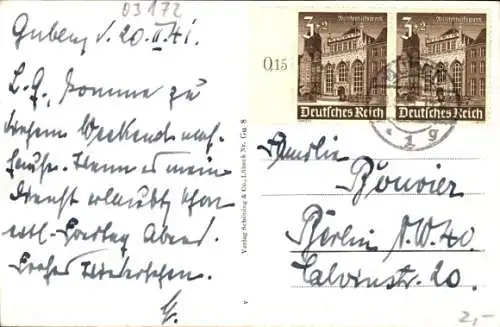 03172
Guben d. 20.II.41.
L. G., komme zu
diesem Weekend nach
hause. Wenn es mein
Dienst erlaubt schon
Freitag Abend.
Frohes Wiedersehen.
G.
Verlag Schöning & Co., Lübeck Nr. Gu 8
0,15
3+2
Deutsches Reich
3+2
Deutsches Reich
1 g
Familie
Bouvier
Berlin N.W.40.
Calvinstr. 20.
2,-